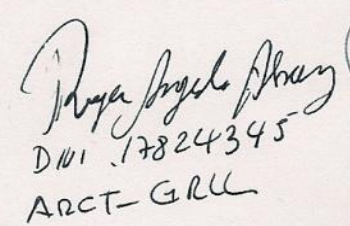 Roger Angelo Alvarez
DNI .17824345
ARCT-GRLL